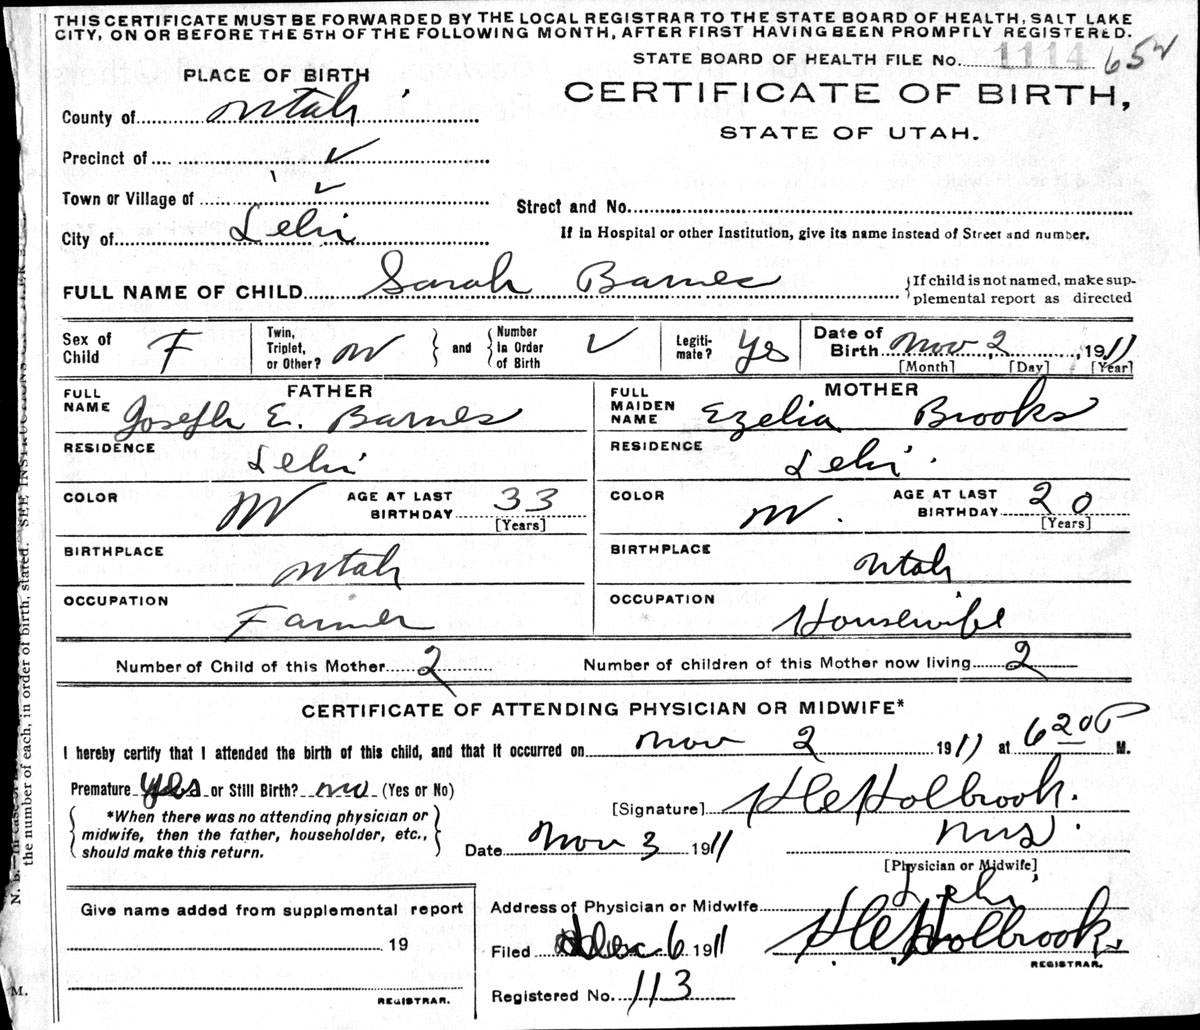 THIS CERTIFICATE MUST BE FORWARDED BY THE LOCAL REGISTRAR TO THE STATE BOARD OF HEALTH, SALT LAKE
CITY, ON OR BEFORE THE 5TH OF THE FOLLOWING MONTH, AFTER FIRST HAVING BEEN PROMPLY REGISTERED.
STATE BOARD OF HEALTH FILE No. 1114 654
PLACE OF BIRTH
CERTIFICATE OF BIRTH,
STATE OF UTAH.
County of Utah
Precinct of ✓
Town or Village of ✓
Street and No.
City of Lehi
If in Hospital or other Institution, give its name instead of Street and number.
FULL NAME OF CHILD Sarah Barnes {If child is not named, make sup-
plemental report as directed
Sex of Child F Twin, Triplet, or Other? and Number In Order of Birth ✓ Legiti-mate? Yes Date of Birth Nov 2, 1911
[Month] [Day] [Year]
FATHER
FULL NAME Joseph E. Barnes
RESIDENCE Lehi
COLOR W AGE AT LAST BIRTHDAY 33
[Years]
BIRTHPLACE Utah
OCCUPATION Farmer
MOTHER
FULL MAIDEN NAME Ezelia Brooks
RESIDENCE Lehi.
COLOR W. AGE AT LAST BIRTHDAY 20
[Years]
BIRTHPLACE Utah
OCCUPATION Housewife
Number of Child of this Mother 2 Number of children of this Mother now living 2
CERTIFICATE OF ATTENDING PHYSICIAN OR MIDWIFE*
I hereby certify that I attended the birth of this child, and that it occurred on Nov 2 1911 at 6 20 P M.
Premature yes or Still Birth? no (Yes or No)
*When there was no attending physician or
midwife, then the father, householder, etc.,
should make this return.
[Signature] Holbrook.
Date Nov 3 1911
[Physician or Midwife]
Address of Physician or Midwife Lehi
Filed Dec 6 1911 Holbrook.
REGISTRAR.
Registered No. 113
Give name added from supplemental report
19
REGISTRAR.
N. B.—In case of
the number of each, in order of birth, stated. SEE INSTRUCTIONS
M.